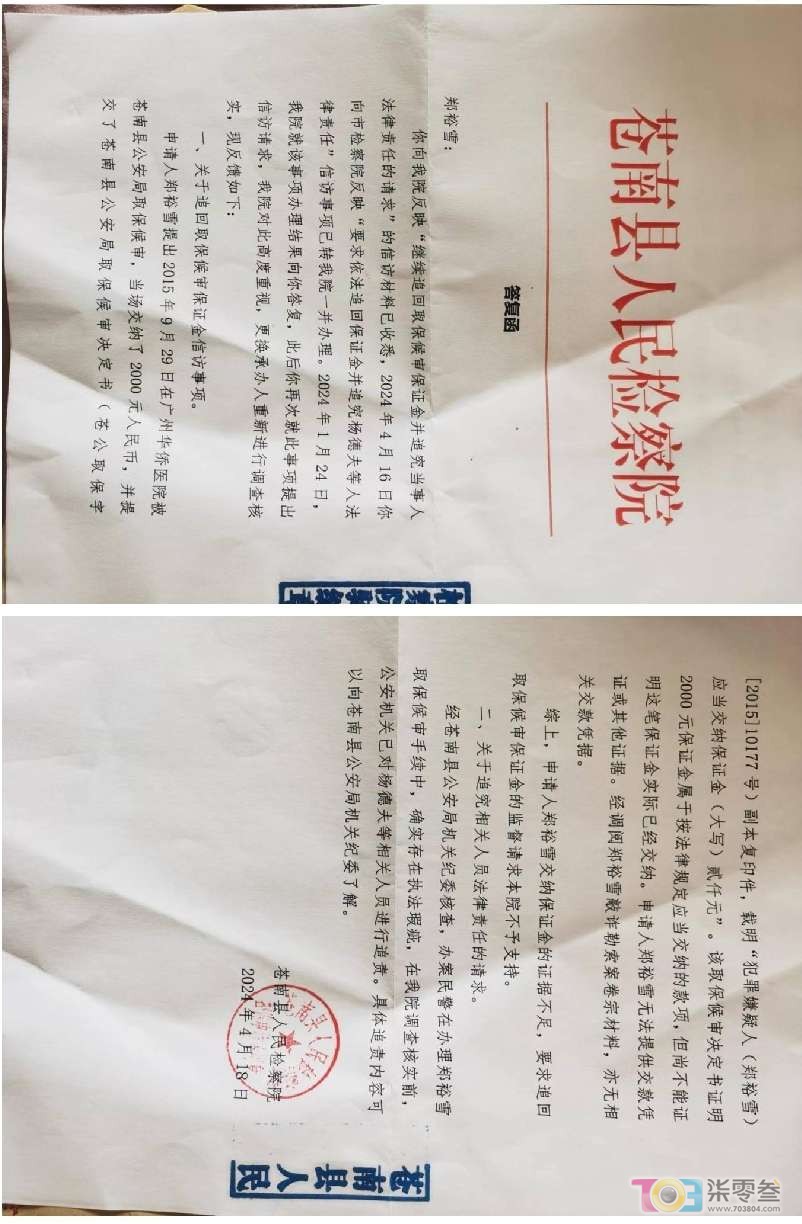 苍南县人民检察院
答复函
郑裕雪：
你向我院反映“继续追回取保候审保证金并追究当事人
法律责任的请求”的信访材料已收悉，2024年4月16日你
向市检察院反映“要求依法追回保证金并追究杨德夫等人法
律责任”信访事项已转我院一并办理。2024年1月24日，
我院就该事项办理结果向你答复，此后你再次就此事项提出
信访请求，我院对此高度重视，更换承办人重新进行调查核
实，现反馈如下：
一、关于追回取保候审保证金信访事项。
申请人郑裕雪提出2015年9月29日在广州华侨医院被
苍南县公安局取保候审，当场交纳了2000元人民币，并提
交了苍南县公安局取保候审决定书（苍公取保字
[2015]10177号）副本复印件，载明“犯罪嫌疑人（郑裕雪）
应当交纳保证金（大写）贰仟元”。该取保候审决定书证明
2000元保证金属于按法律规定应当交纳的款项，但尚不能证
明这笔保证金实际已经交纳。申请人郑裕雪无法提供交款凭
证或其他证据。经调阅郑裕雪敲诈勒索案卷宗材料，亦无相
关交款凭据。
综上，申请人郑裕雪交纳保证金的证据不足，要求追回
取保候审保证金的监督请求本院不予支持。
二、关于追究相关人员法律责任的请求。
经苍南县公安局机关纪委核查，办案民警在办理郑裕雪
取保候审手续中，确实存在执法瑕疵，在我院调查核实前，
公安机关已对杨德夫等相关人员进行追责。具体追责内容可
以向苍南县公安局机关纪委了解。
苍南县人民检察院
2024年4月18日
苍南县人民
柒零叁
www.703804.com